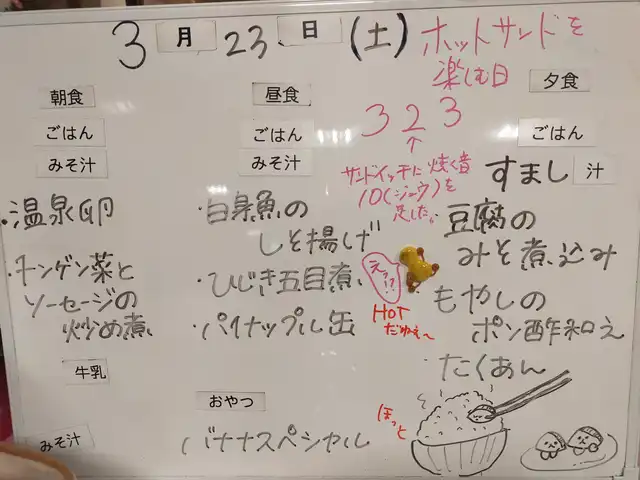 3月23日(土)
ホットサンドを
楽しむ日
323
↑
サンドイッチに焼く音
10(ジューウ)を
足した。
朝食
ごはん
みそ汁
・温泉卵
・チンゲン菜と
ソーセージの
炒め煮
牛乳
みそ汁
昼食
ごはん
みそ汁
・白身魚の
しそ揚げ
・ひじき五目煮
・パイナップル缶
おやつ
バナナスペシャル
えっ!?
HOT
だねぇ〜
夕食
ごはん
すまし汁
豆腐の
みそ煮込み
もやしの
ポン酢和え
・たくあん
ほっと